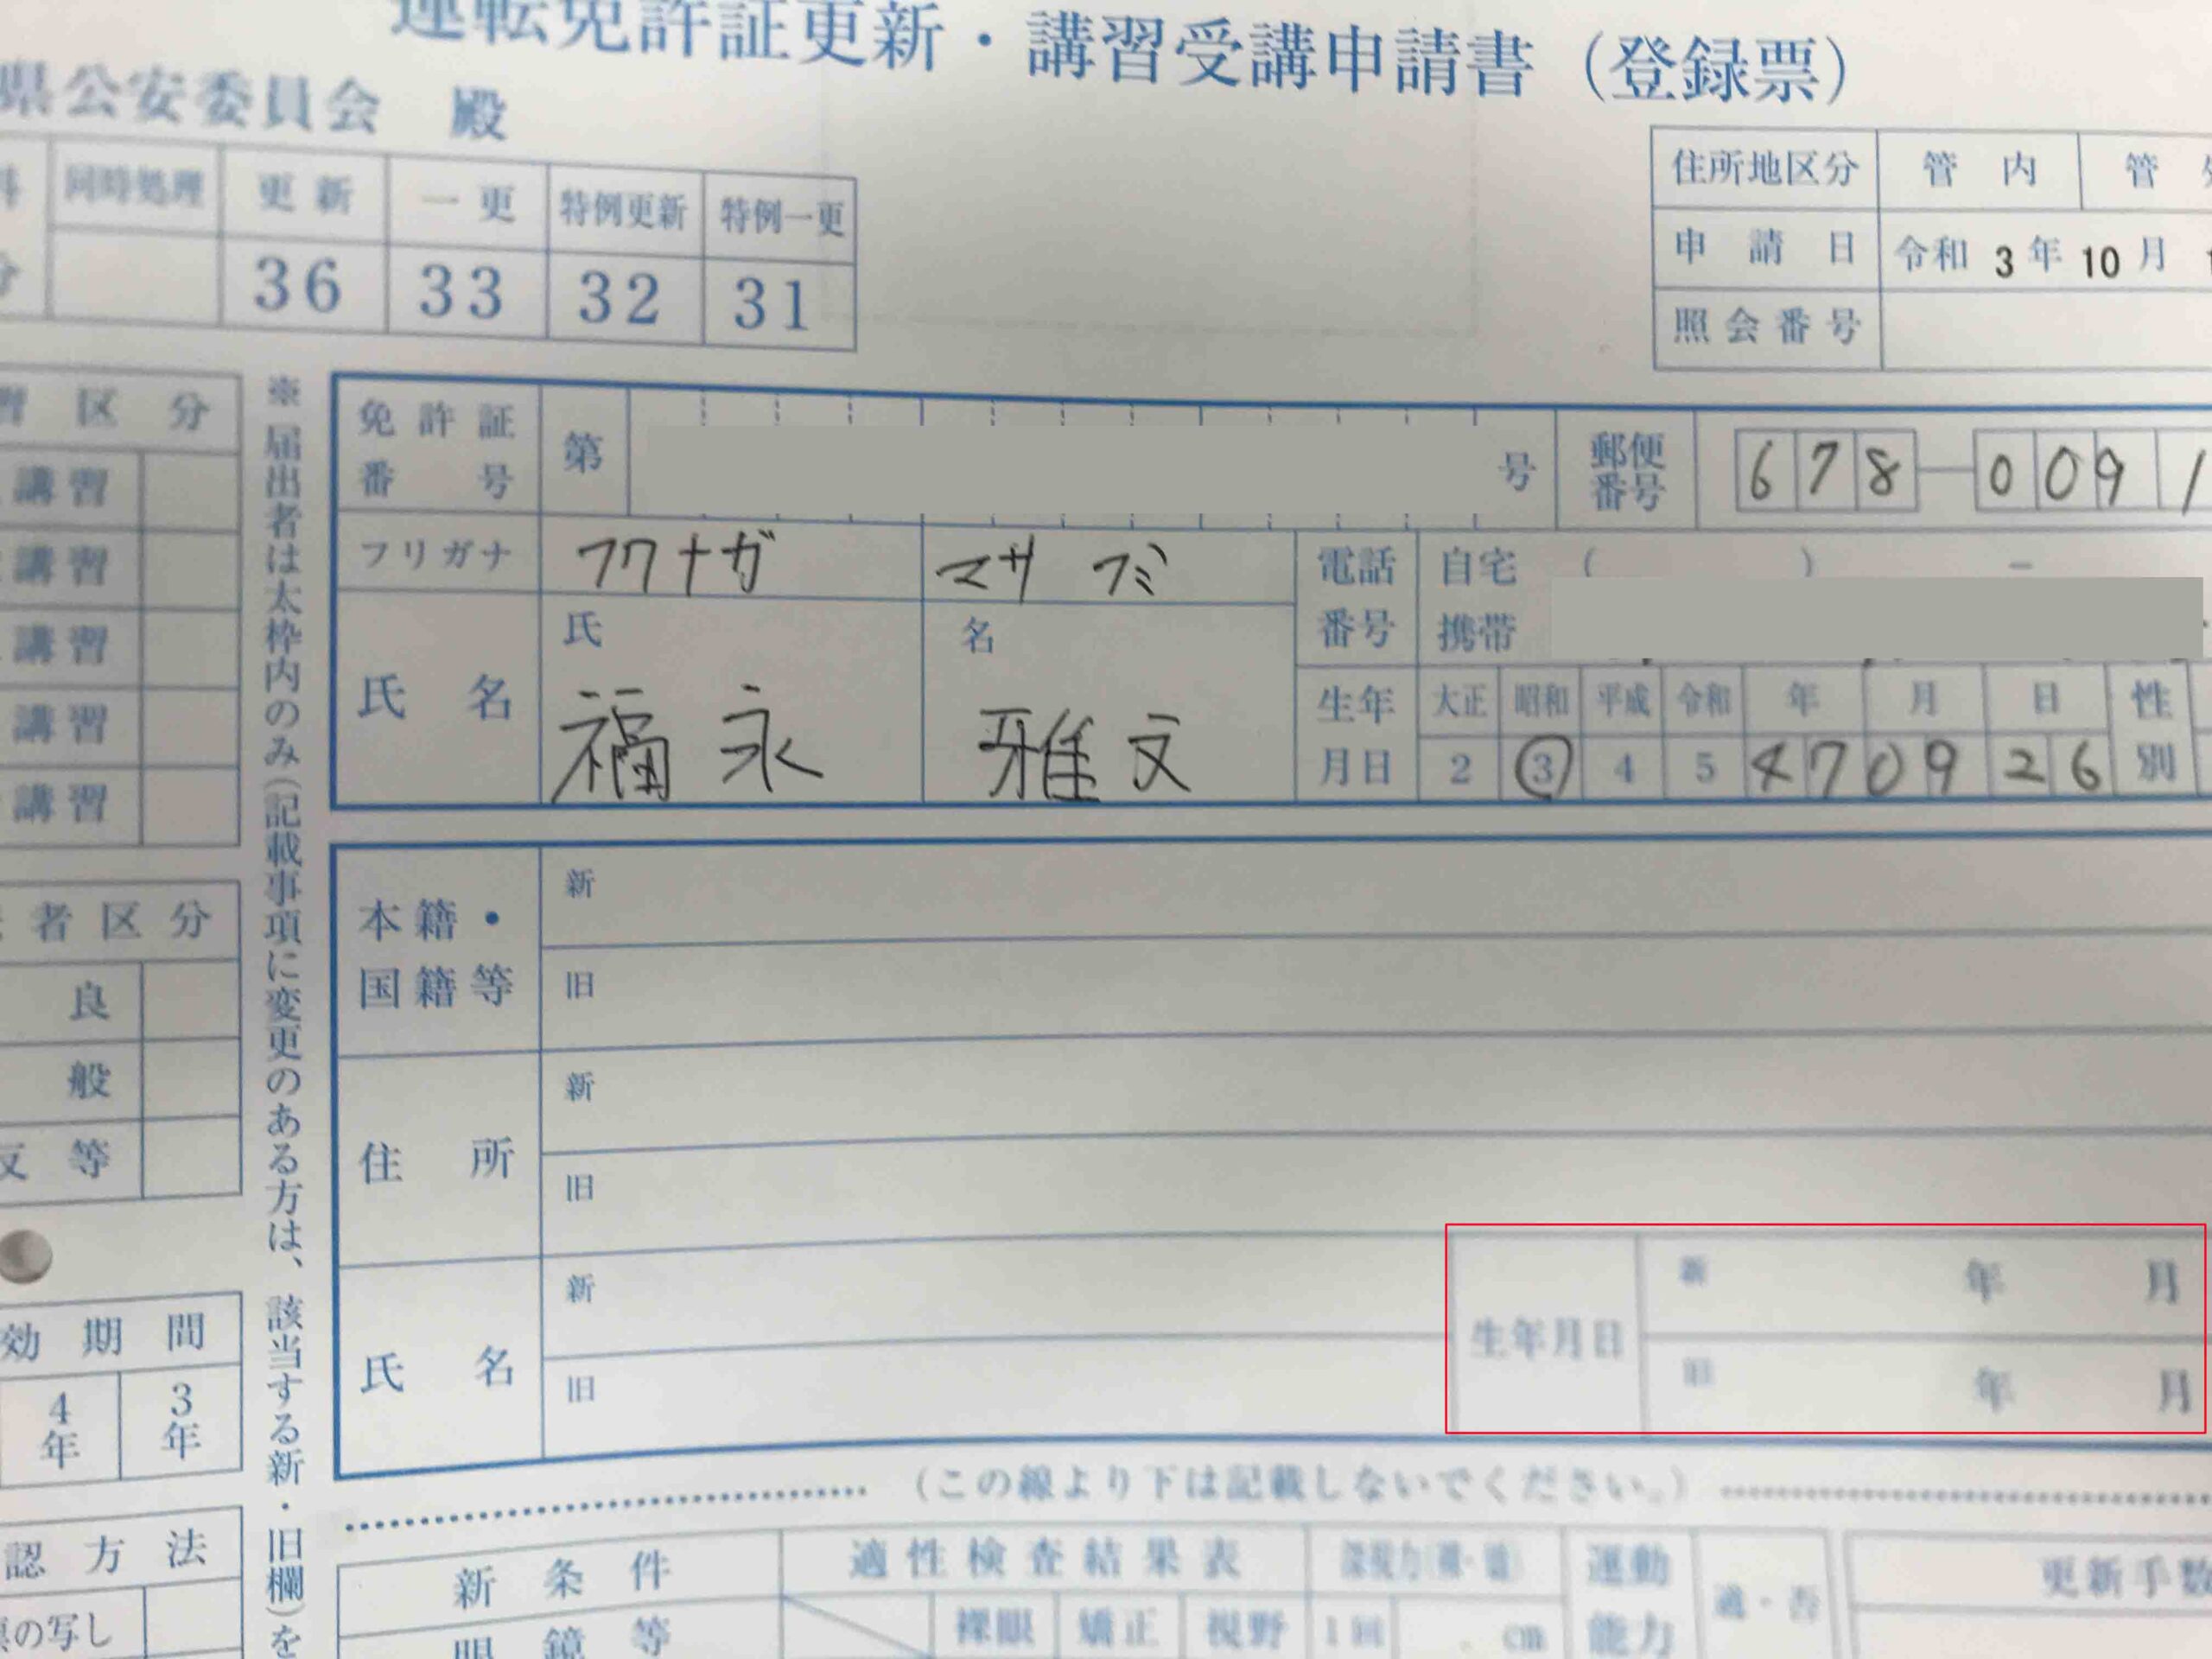 運転免許証更新・講習受講申請書（登録票）
県公安委員会 殿
同時処理 更新 一更 特例更新 特例一更
36 33 32 31
住所地区分 管内 管
申請日 令和 3年 10月
照会番号
習区分
講習
講習
講習
講習
講習
者区分
良
般
反等
効期間
4年 3年
認方法
票の写し
※届出者は太枠内のみ（記載事項に変更のある方は、該当する新・旧欄）を
免許証番号 第 号 郵便番号 678-0091
フリガナ フクナガ マサフミ
電話番号 自宅 ( ) -
携帯
氏名 氏 福永 名 雅文
生年月日 大正 昭和 平成 令和 年 月 日 性別
2 3 4 5 47 09 26
本籍・国籍等 新
旧
住所 新
旧
氏名 新
旧
生年月日 新 年 月
旧 年 月
（この線より下は記載しないでください。）
新条件 適性検査結果表 運動能力 適・否 更新手数
眼鏡等 裸眼 矯正 視野 1回 cm